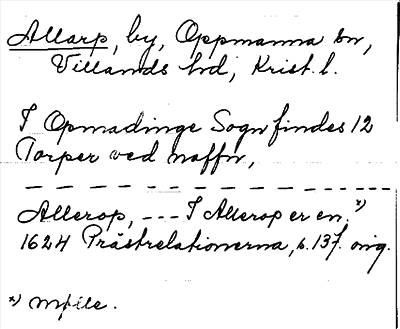 Allarp, by, Oppmanna sn,
Villands hd, Krist. l.
I Opmadinge Sogn findes 12
Torper ved naffn,
Allerop, --- I Allerop er en. *)
1624 Prästrelationerna, s. 137. orig.
*) Mølle.